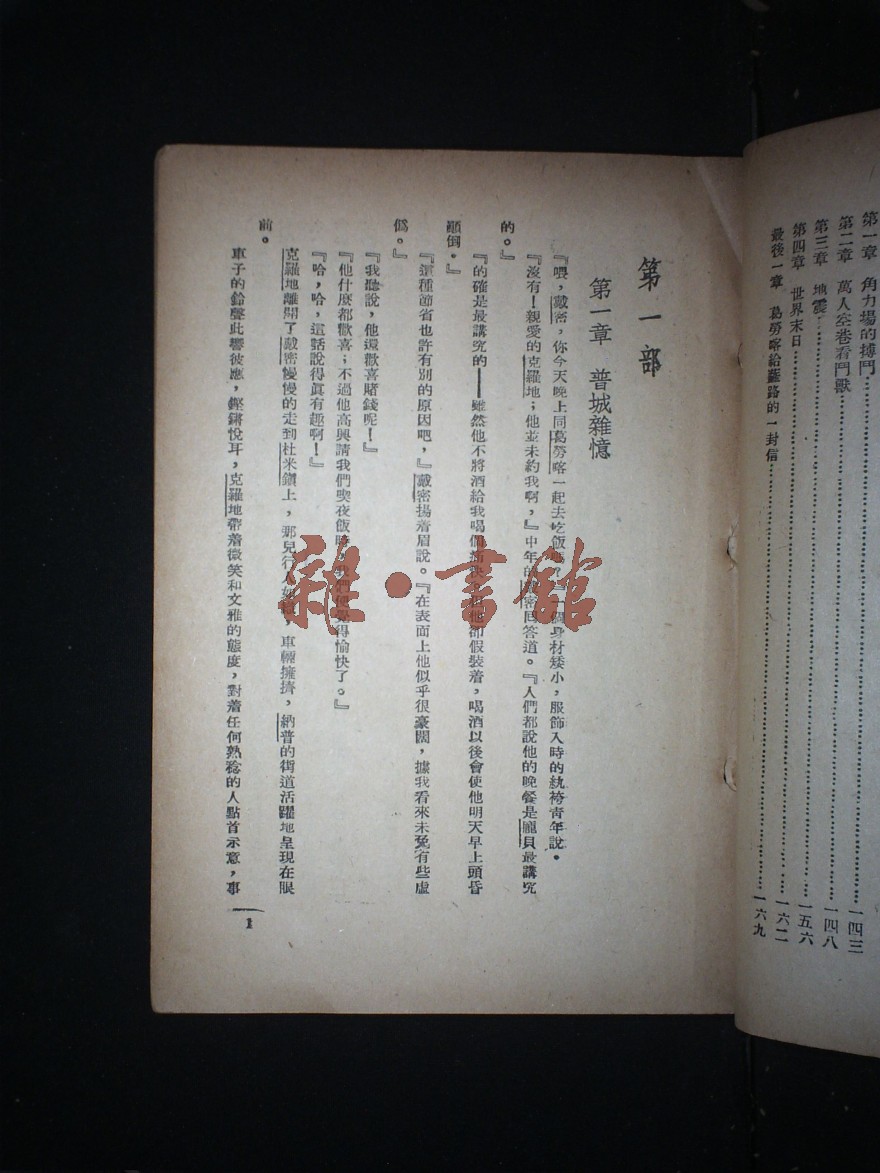 第一章 角力場的搏鬥……一四三
第二章 萬人空巷看鬥獸……一四八
第三章 地震……一五六
第四章 世界末日……一六二
最後一章 葛勞喀給薩路的一封信……一六九
第一部
第一章 普城雜憶
『喂，戴密，你今天晚上同葛勞喀一起去吃飯 身材矮小，服飾入時的紈袴青年說。
『沒有！親愛的克羅地；他並未約我啊，』中年的戴密回答道。『人們都說他的晚餐是龐貝最講究
的。』
『的確是最講究的——雖然他不將酒給我喝 他卻假裝着，喝酒以後會使他明天早上頭昏
顚倒。』
『這種節省也許有別的原因吧，』戴密揚着眉說。『在表面上他似乎很豪闊，據我看來未免有些虛
僞。』
『我聽說，他還歡喜賭錢呢！』
『他什麼都歡喜；不過他高興請我們喫夜飯時，我們便覺得愉快了。』
『哈，哈，這話說得眞有趣啊！』
克羅地離開了戴密慢慢的走到杜米鎭上，那兒行人如 ，車輛擁擠，納普的街道活躍地呈現在眼
前。
車子的鈴聲此響彼應，鏗鏘悅耳，克羅地帶着微笑和文雅的態度，對着任何熟稔的人點首示意，事
1
雜·書館